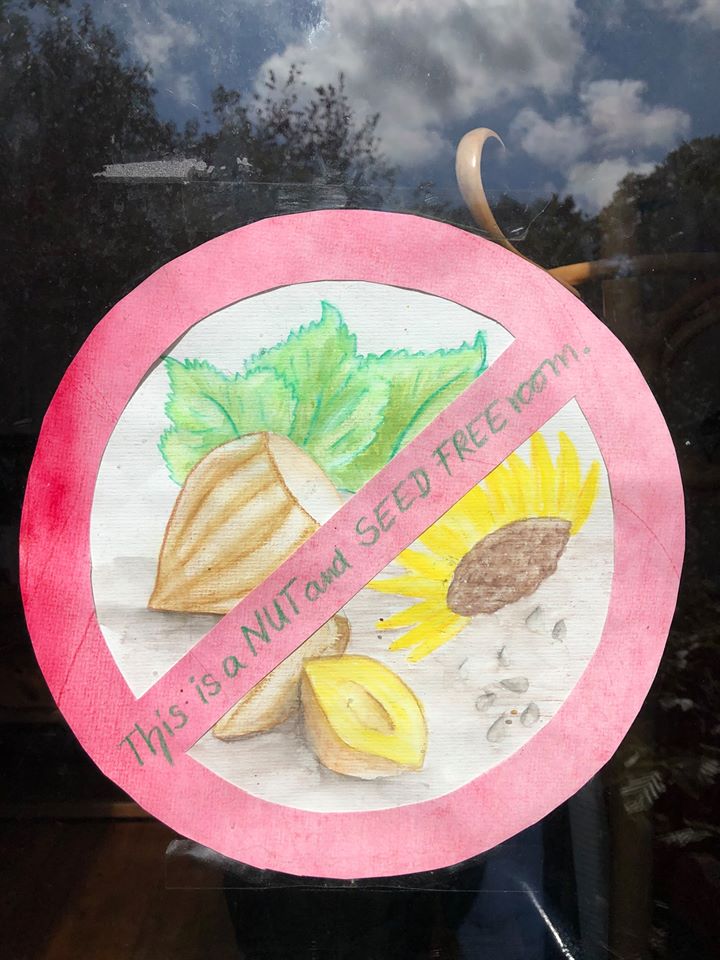 This is a NUT and SEED FREE room.